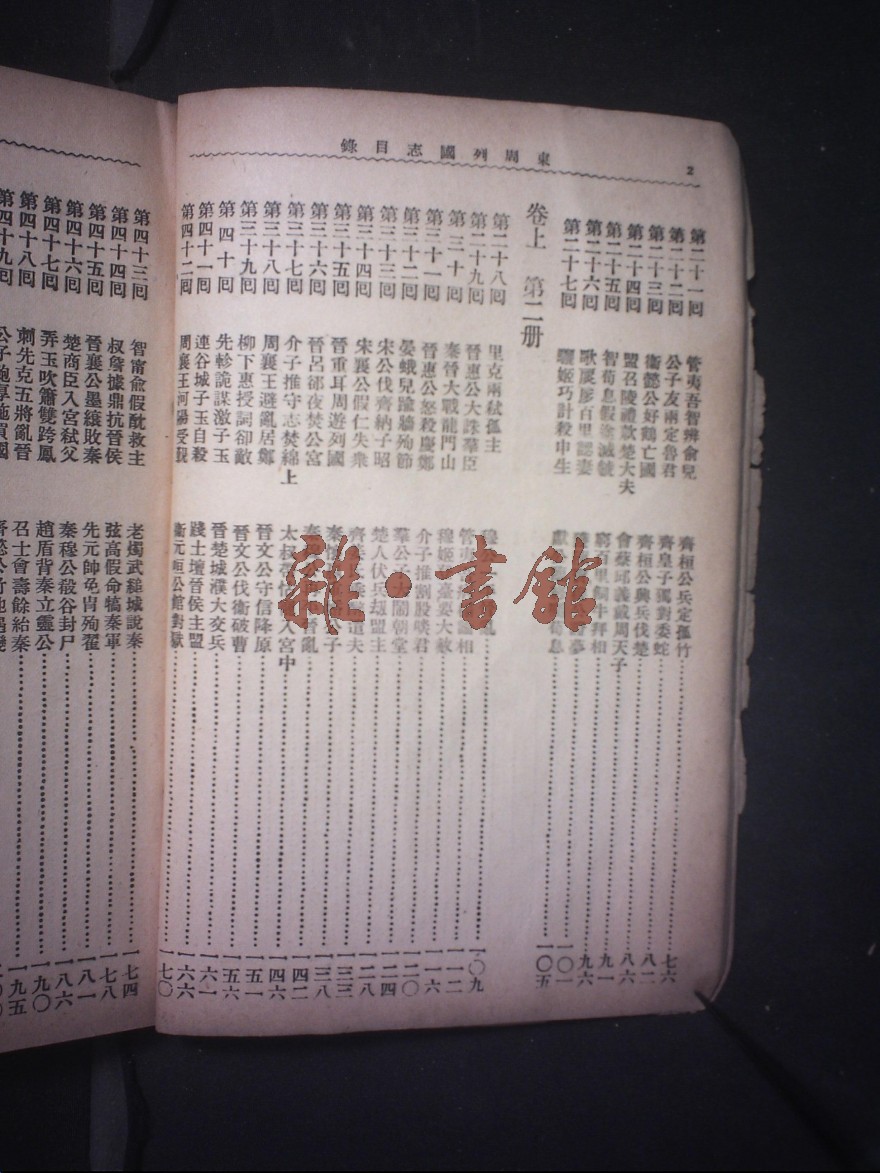 東周列國志目錄 2
第二十一回 管夷吾智辨俞兒 齊桓公兵定孤竹 七六
第二十二回 公子友兩定魯君 齊皇子獨對委蛇 八二
第二十三回 衞懿公好鶴亡國 齊桓公興兵伐楚 八六
第二十四回 盟召陵禮款楚大夫 會葵邱義戴周天子 九一
第二十五回 智荀息假途滅虢 窮百里飼牛拜相 九六
第二十六回 歌扊扅百里認妻 夢 一〇一
第二十七回 驪姬巧計殺申生 獻公 荀息 一〇五
卷上 第二册
第二十八回 里克兩弒孤主 穆 亂 一〇九
第二十九回 晉惠公大誅羣臣 管夷 論相 一一二
第三十回 秦晉大戰龍門山 穆姬登臺要大赦 一一六
第三十一回 晉惠公怒殺慶鄭 介子推割股啖君 一二〇
第三十二回 晏蛾兒踰牆殉節 羣公子大鬧朝堂 一二四
第三十三回 宋公伐齊納子昭 楚人伏兵刼盟主 一二八
第三十四回 宋襄公假仁失衆 齊姜 遣夫 一三三
第三十五回 晉重耳周遊列國 秦 公子 一三八
第三十六回 晉呂郤夜焚公宮 秦 晉亂 一四二
第三十七回 介子推守志焚綿上 太叔帶怙 入宮中 一四六
第三十八回 周襄王避亂居鄭 晉文公守信降原 一五一
第三十九回 柳下惠授詞卻敵 晉文公伐衞破曹 一五六
第四十回 先軫詭謀激子玉 晉楚城濮大交兵 一六一
第四十一回 連谷城子玉自殺 踐土壇晉侯主盟 一六六
第四十二回 周襄王河陽受覲 衞元咺公館對獄 一七〇
第四十三回 智甯俞假酖救主 老燭武縋城說秦 一七四
第四十四回 叔詹據鼎抗晉侯 弦高假命犒秦軍 一七八
第四十五回 晉襄公墨縗敗秦 先元帥免胄殉翟 一八一
第四十六回 楚商臣入宮弒父 秦穆公殽谷封尸 一八六
第四十七回 弄玉吹簫雙跨鳳 趙盾背秦立靈公 一九〇
第四十八回 刺先克五將亂晉 召士會壽餘紿秦 一九五
第四十九回 公子鮑厚施買國
雜·書館